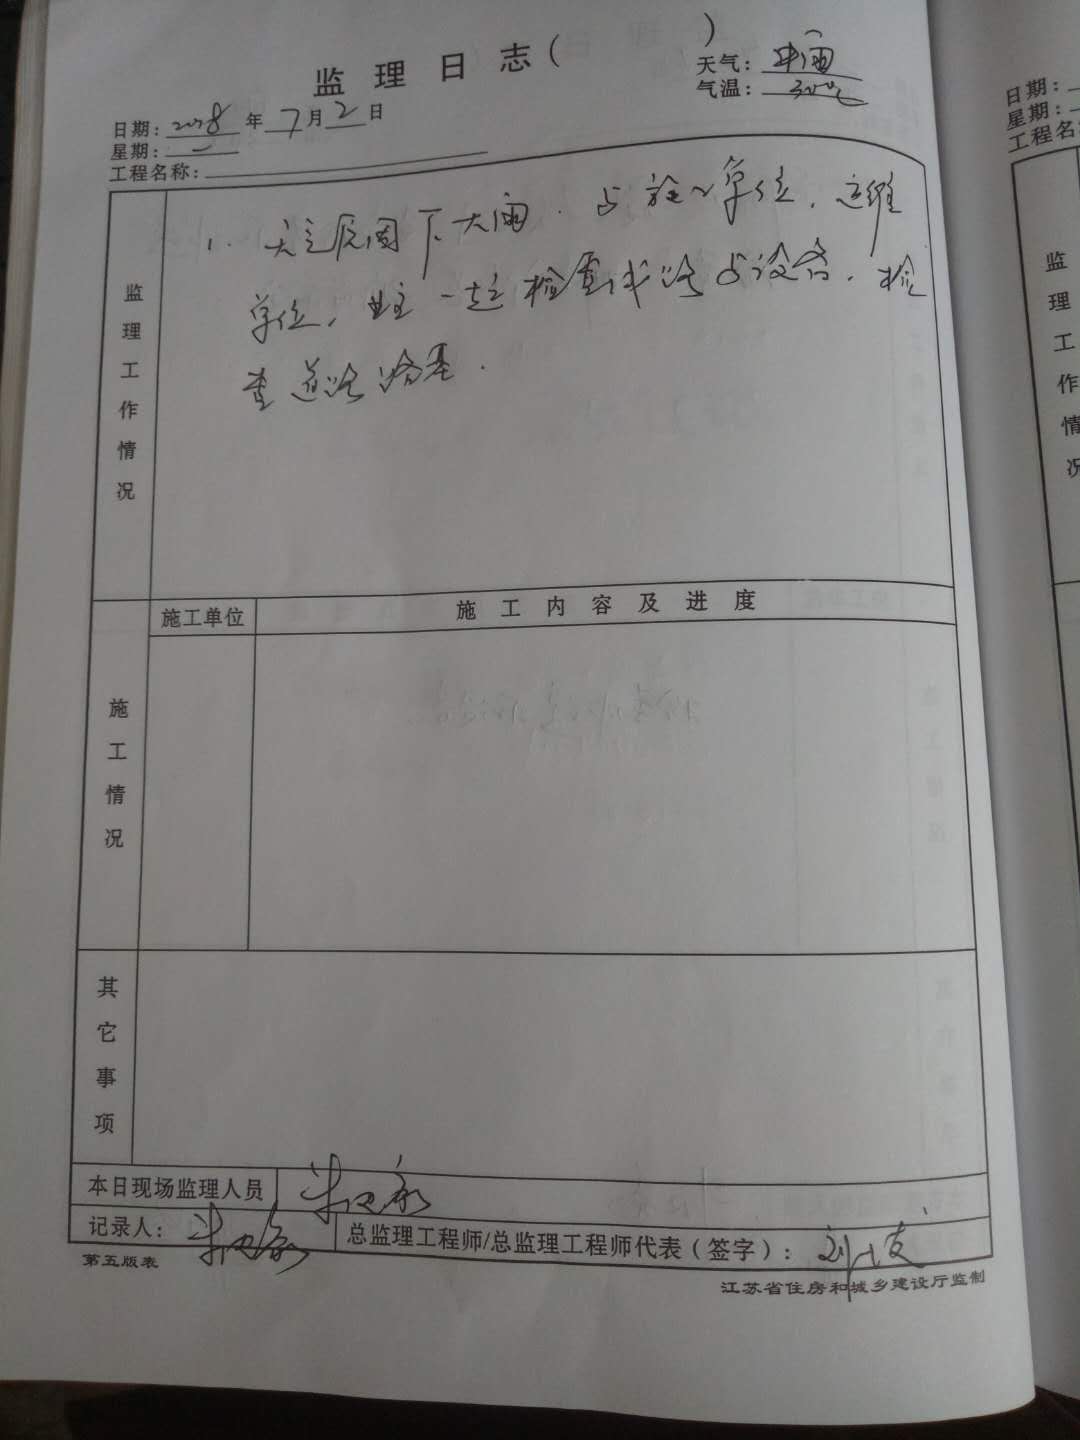 监理日志( )
天气: 中雨
气温: 30℃
日期: 2018 年 7 月 2 日
星期: 一
工程名称:
监理工作情况
1. 天气原因下大雨. 与施工单位, 运维
单位, 业主一起检查线路与设备, 检
查道路路基.
施工单位 施工内容及进度
施工情况
其它事项
本日现场监理人员
记录人: 总监理工程师/总监理工程师代表(签字):
第五版表 江苏省住房和城乡建设厅监制
日期:
星期:
工程名
监理工作情况